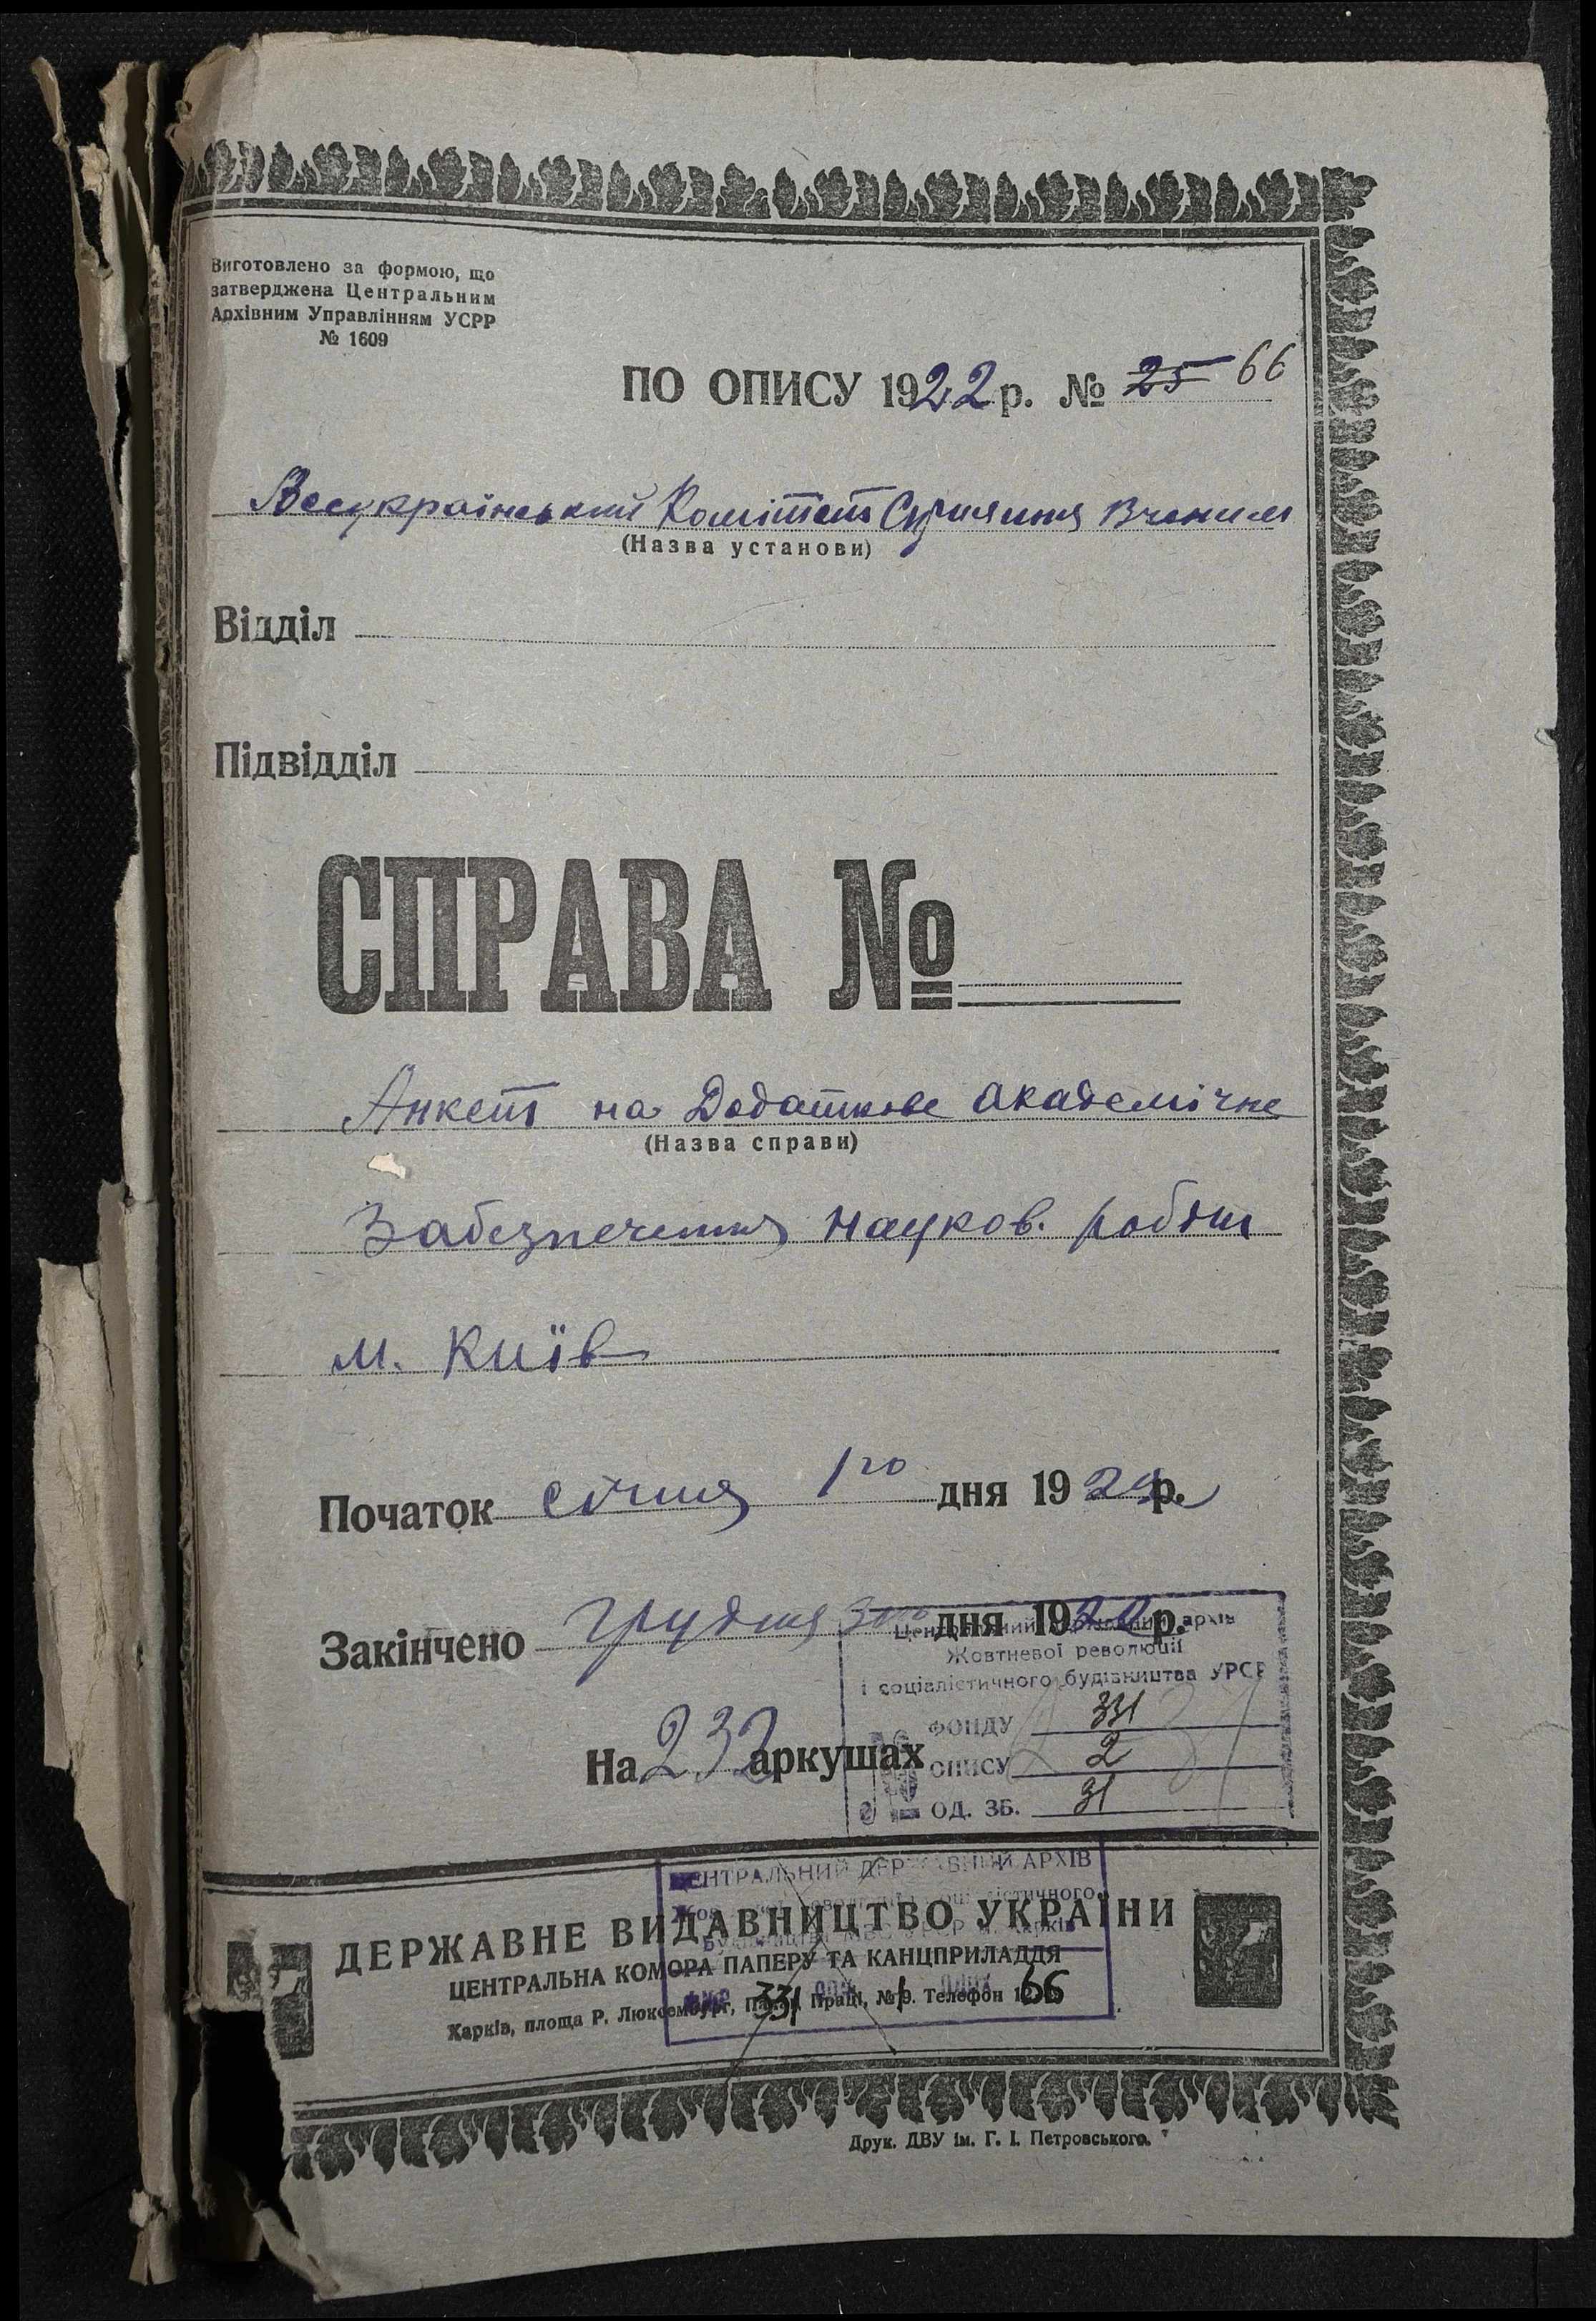 Виготовлено за формою, що
затверджена Центральним
Архівним Управлінням УСРР
№ 1609
ПО ОПИСУ 1922 р. № 25 66
Всеукраїнський Комітет Сприяння Вченим
(Назва установи)
Відділ
Підвідділ
СПРАВА №
Анкет на Додаткове академічне
(Назва справи)
Забезпечення науков. робітн
м. Київ
Початок січня 1го дня 19 р.
Закінчено грудня дня 1922 р.
Центральний архів
Жовтневої революції
і соціалістичного будівництва УРСР
На 232 аркушах
ФОНДУ 331
ОПИСУ 2
ОД. ЗБ. 31
ЦЕНТРАЛЬНИЙ ДЕРЖАВНИЙ АРХІВ
ДЕРЖАВНЕ ВИДАВНИЦТВО УКРАЇНИ
ЦЕНТРАЛЬНА КОМОРА ПАПЕРУ ТА КАНЦПРИЛАДДЯ
Харків, площа Р. Люксембург, Пал. Праці, № 9. Телефон
331 1 66
Друк. ДВУ ім. Г. І. Петровського.